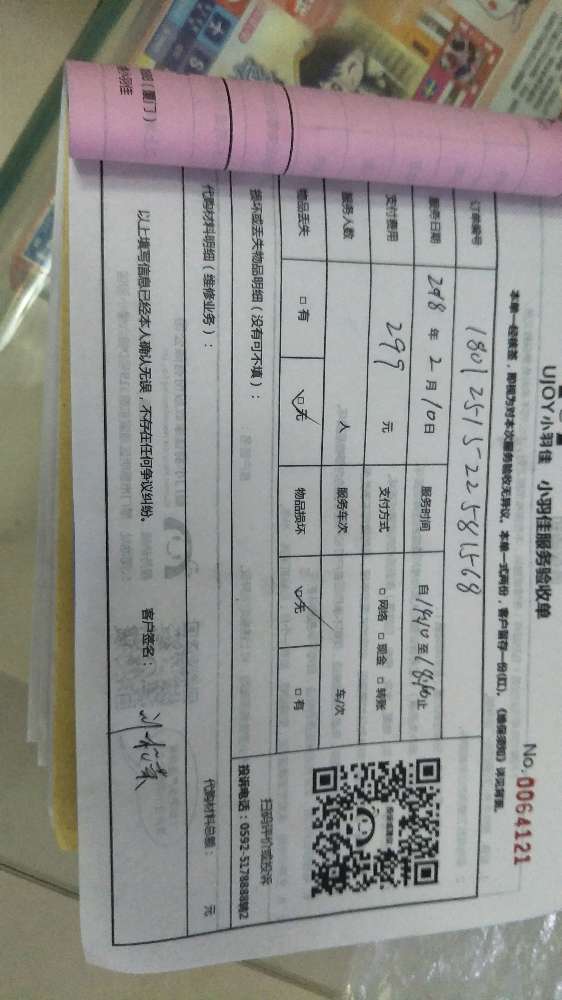 UJOY小羽佳 小羽佳服务验收单
No. 0064121
本单一经核签，即视为对本次服务验收无异议。本单一式两份，客户留存一份(红)。《维保须知》详见背面。
订单编号 1801251522581568
服务日期 2018年2月10日 服务时间 自14:10至18:10止
支付费用 299 元 支付方式 □网络 □现金 □转账
服务人数 人 服务车次 车/次
物品丢失 □有 □无 物品损坏 □无 □有
损坏或丢失物品明细（没有可不填）：
扫码评价或投诉
投诉电话：0592-5178888转2
代购材料明细（维修业务）：
代购材料总额： 元
以上填写信息已经本人确认无误，不存在任何争议纠纷。 客户签名：
（厦门）
小羽佳